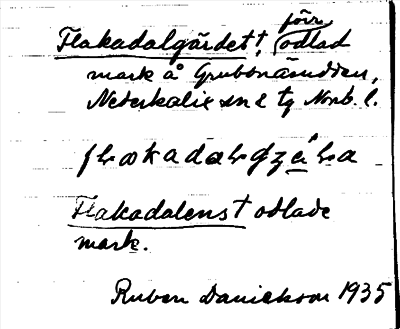 förr
Flakadalgärdet†, odlad
mark å Grubbnäsudden,
Nederkalix sn o tg Norrb. l.
Flakadalens† odlade
mark.
Ruben Danielsson 1935